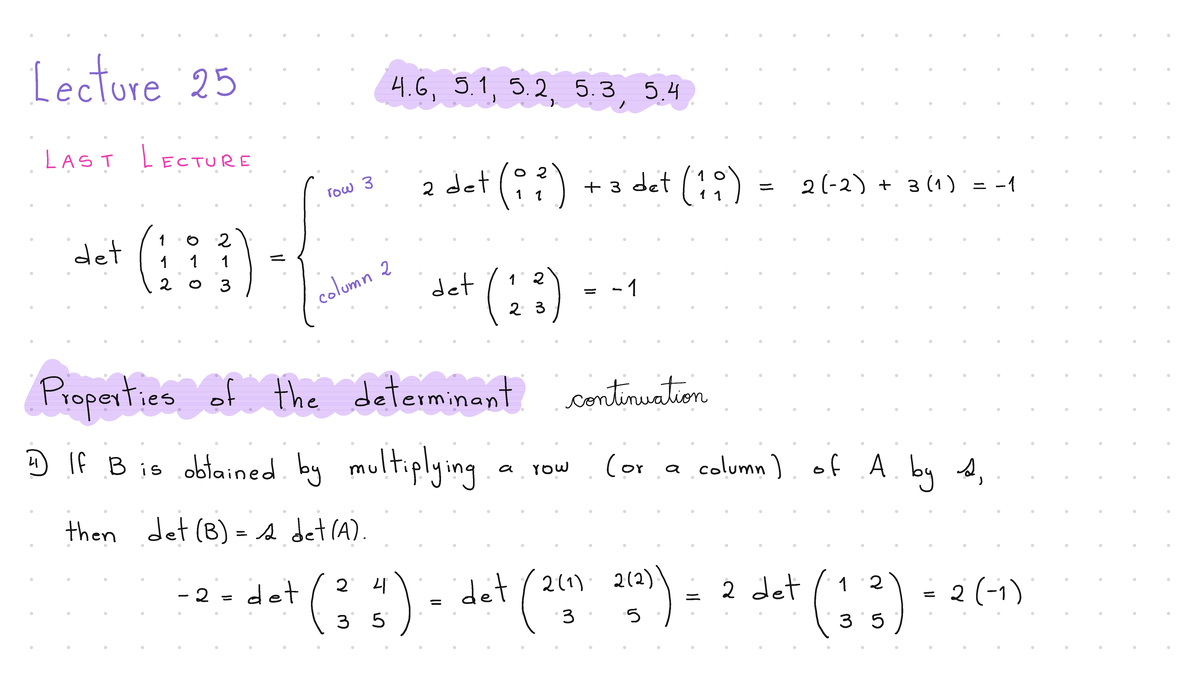 Lecture 25 4.6, 5.1, 5.2, 5.3, 5.4
LAST LECTURE
row 3 2 det (0 2; 1 1) + 3 det (1 0; 1 1) = 2(-2) + 3(1) = -1
det (1 0 2; 1 1 1; 2 0 3) = {
column 2 det (1 2; 2 3) = -1
Properties of the determinant continuation
4) If B is obtained by multiplying a row (or a column) of A by s,
then det(B) = s det(A).
-2 = det (2 4; 3 5) = det (2(1) 2(2); 3 5) = 2 det (1 2; 3 5) = 2(-1)